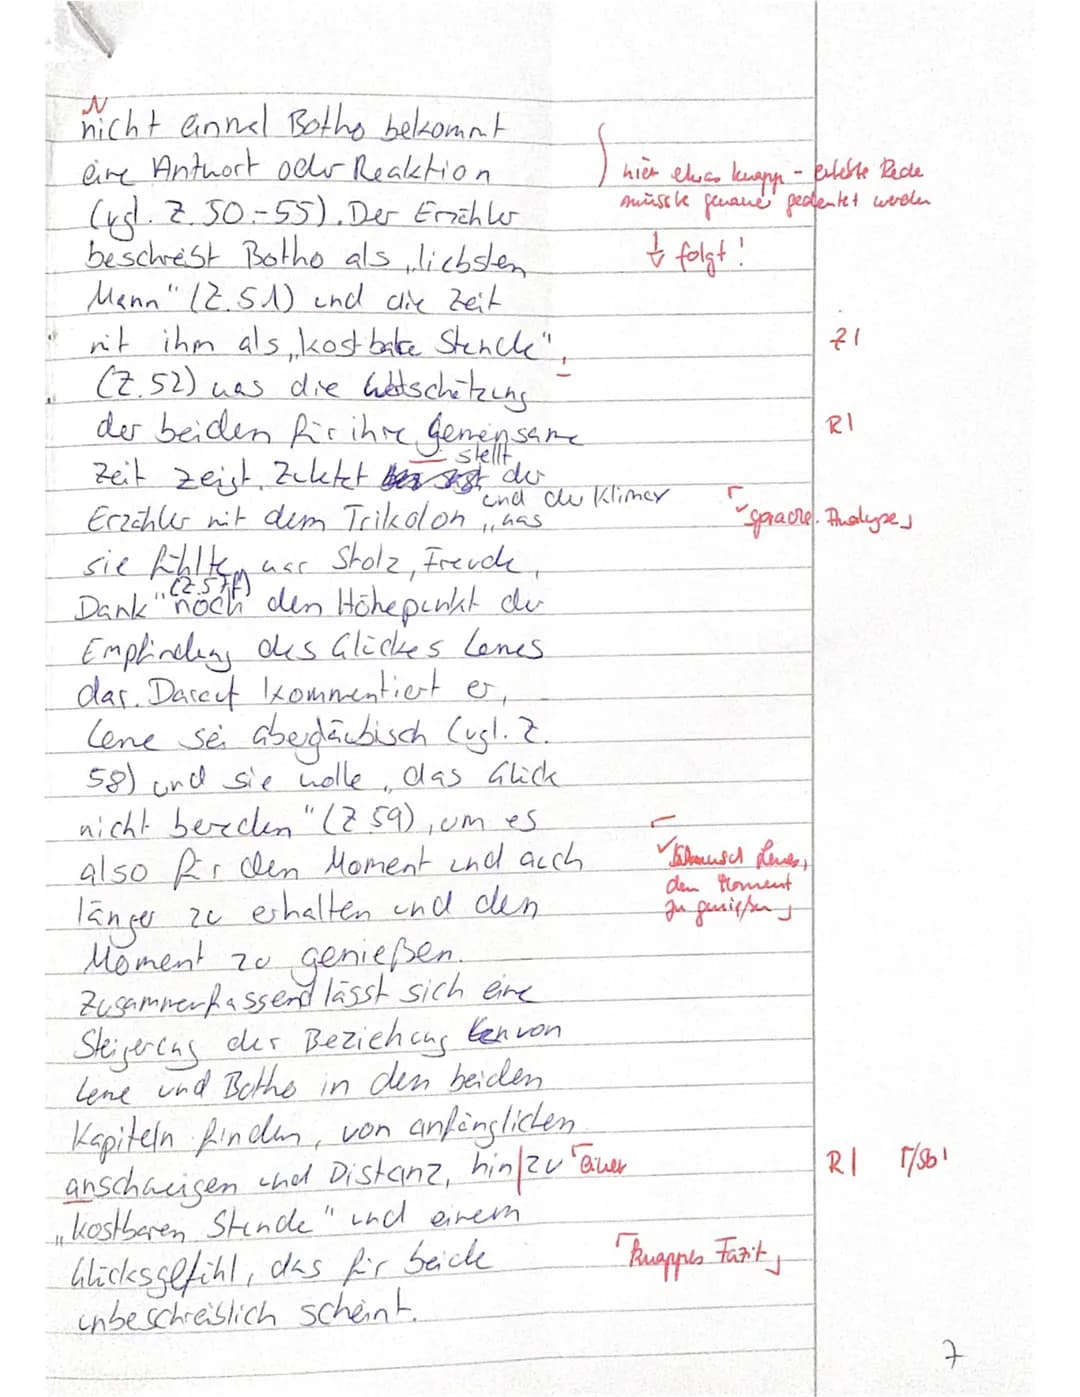 N
nicht einmal Botho bekommt
eine Antwort oder Reaktion
(vgl. Z. 50.-55). Der Erzähler
hier etwas knapp - erlebte Rede
müsste genauer gedeutet werden
↓ folgt!
beschreibt Botho als „liebsten
Mann" (Z. 51) und die Zeit
mit ihm als „kostbare Stunde",
Z I
(Z. 52) was die Wertschätzung
der beiden für ihre Gemeinsame
R I
Zeit zeigt. Zuletzt stellt der
Erzähler mit dem Trikolon und der Klimax „was
sprachl. Analyse
sie fühlte, war Stolz, Freude,
Dank" (Z. 57f) noch den Höhepunkt der
Empfindung des Glückes Lenes
dar. Darauf kommentiert er,
Lene sei abergläubisch (vgl. Z.
58) und sie wolle „das Glück
nicht bereden" (Z 59), um es
also für den Moment und auch
✓ Wunsch Lenes,
den Moment
zu genießen
länger zu erhalten und den
Moment zu genießen.
Zusammenfassend lässt sich eine
Steigerung der Beziehung von
Lene und Botho in den beiden
Kapiteln finden, von anfänglichen
anschweigen und Distanz, hin|zu einer
R I Γ/Sb I
„kostbaren Stunde" und einem
Glücksgefühl, das für beide
knappes Fazit
unbeschreiblich scheint.
7